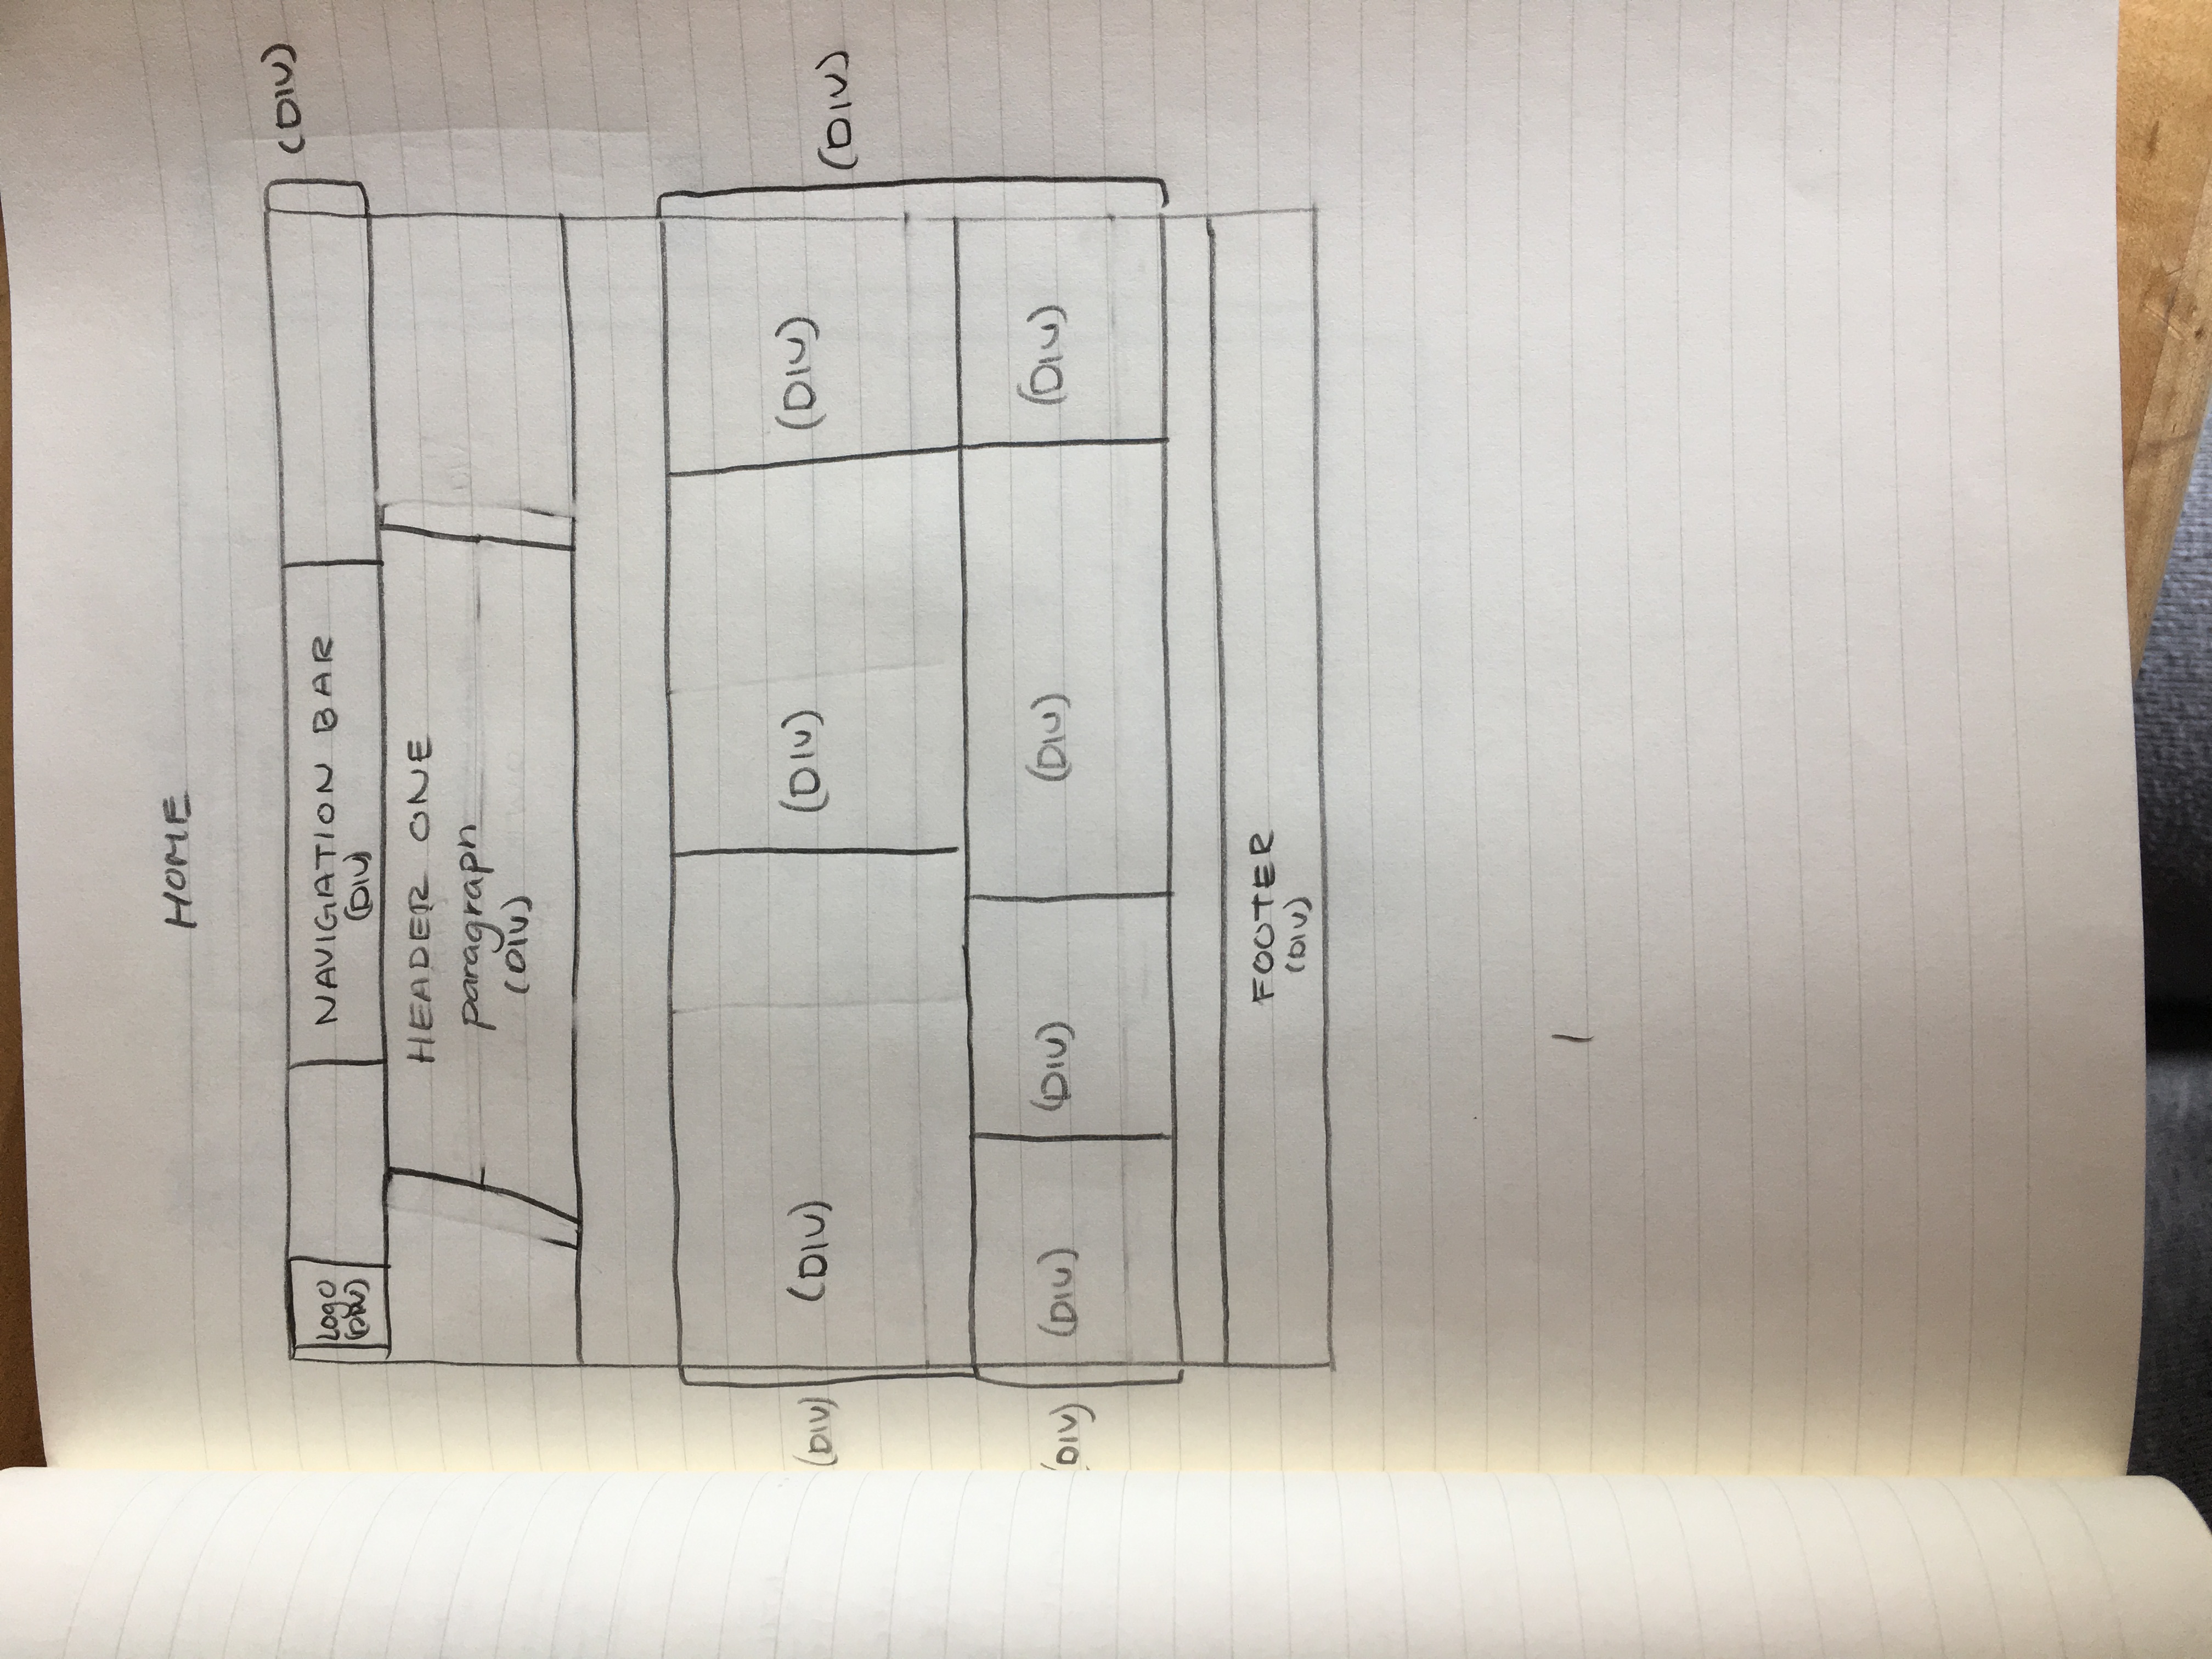 HOME
(DIV)
Logo
(DIV)
NAVIGATION BAR
(DIV)
HEADER ONE
paragraph
(DIV)
(DIV)
(DIV)
(DIV)
(DIV)
(DIV)
(DIV)
(DIV)
(DIV)
(DIV)
(DIV)
FOOTER
(DIV)